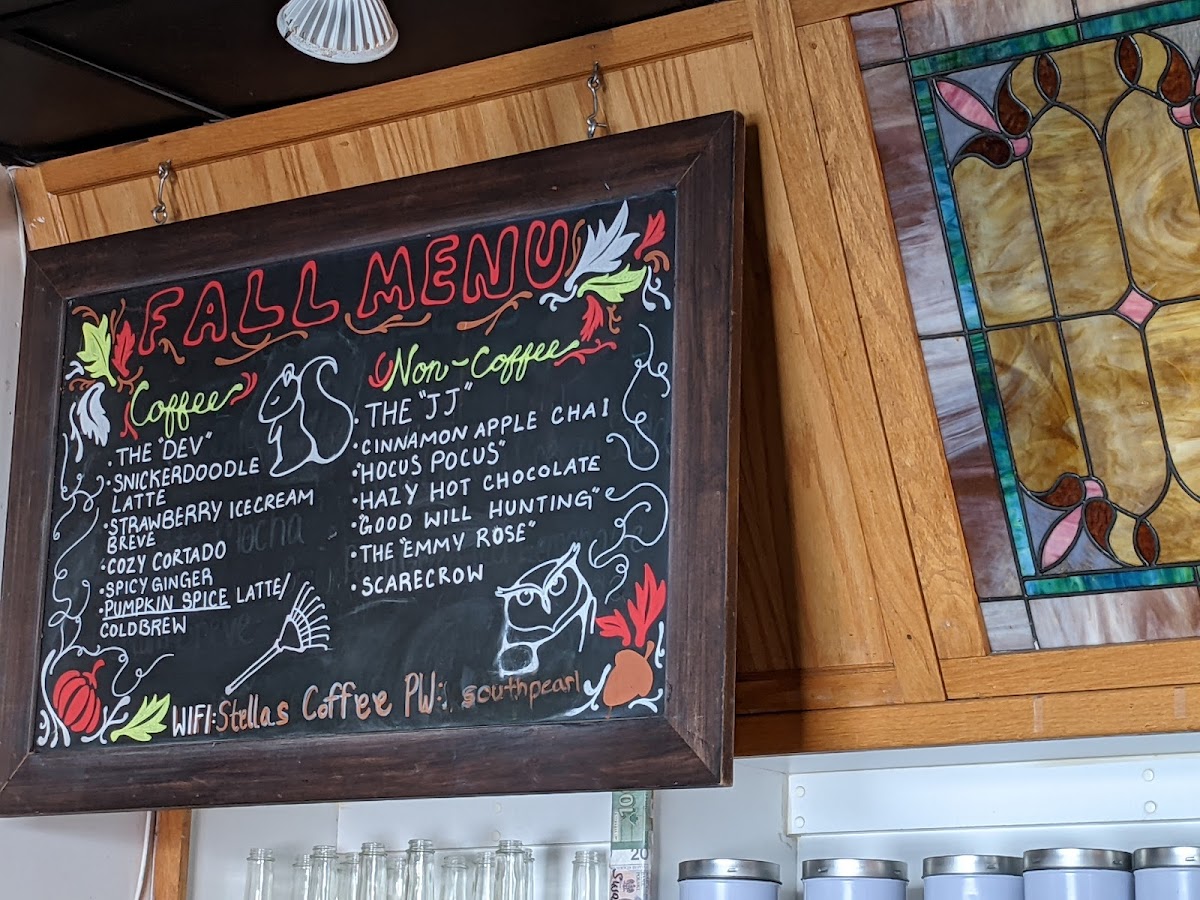 FALL MENU
Coffee
· THE "DEV"
· SNICKERDOODLE
LATTE
· STRAWBERRY ICECREAM
BREVE
· COZY CORTADO
· SPICY GINGER
· PUMPKIN SPICE LATTE/
COLDBREW
Non-Coffee
· THE "JJ"
· CINNAMON APPLE CHAI
· "HOCUS POCUS"
· HAZY HOT CHOCOLATE
· "GOOD WILL HUNTING"
· THE "EMMY ROSE"
· SCARECROW
WIFI: Stellas Coffee PW: southpearl
20